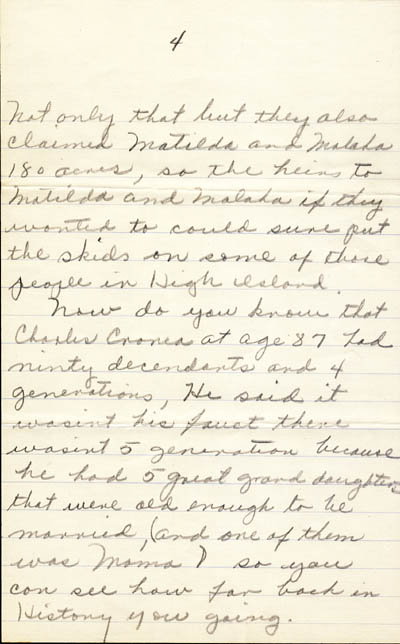 4
Not only that but they also
claimed Matilda and Malaha
180 acres, so the heirs to
Matilda and Malaha if they
wanted to could sure put
the skids on some of those
people in High Island.
Now do you know that
Charles Cronea at age 87 had
ninty decendants and 4
generations, He said it
wasint his faust there
wasint 5 generation because
he had 5 great grand daughters
that were old enough to be
married, (and one of them
was Moma) so you
can see how far back in
History you going.